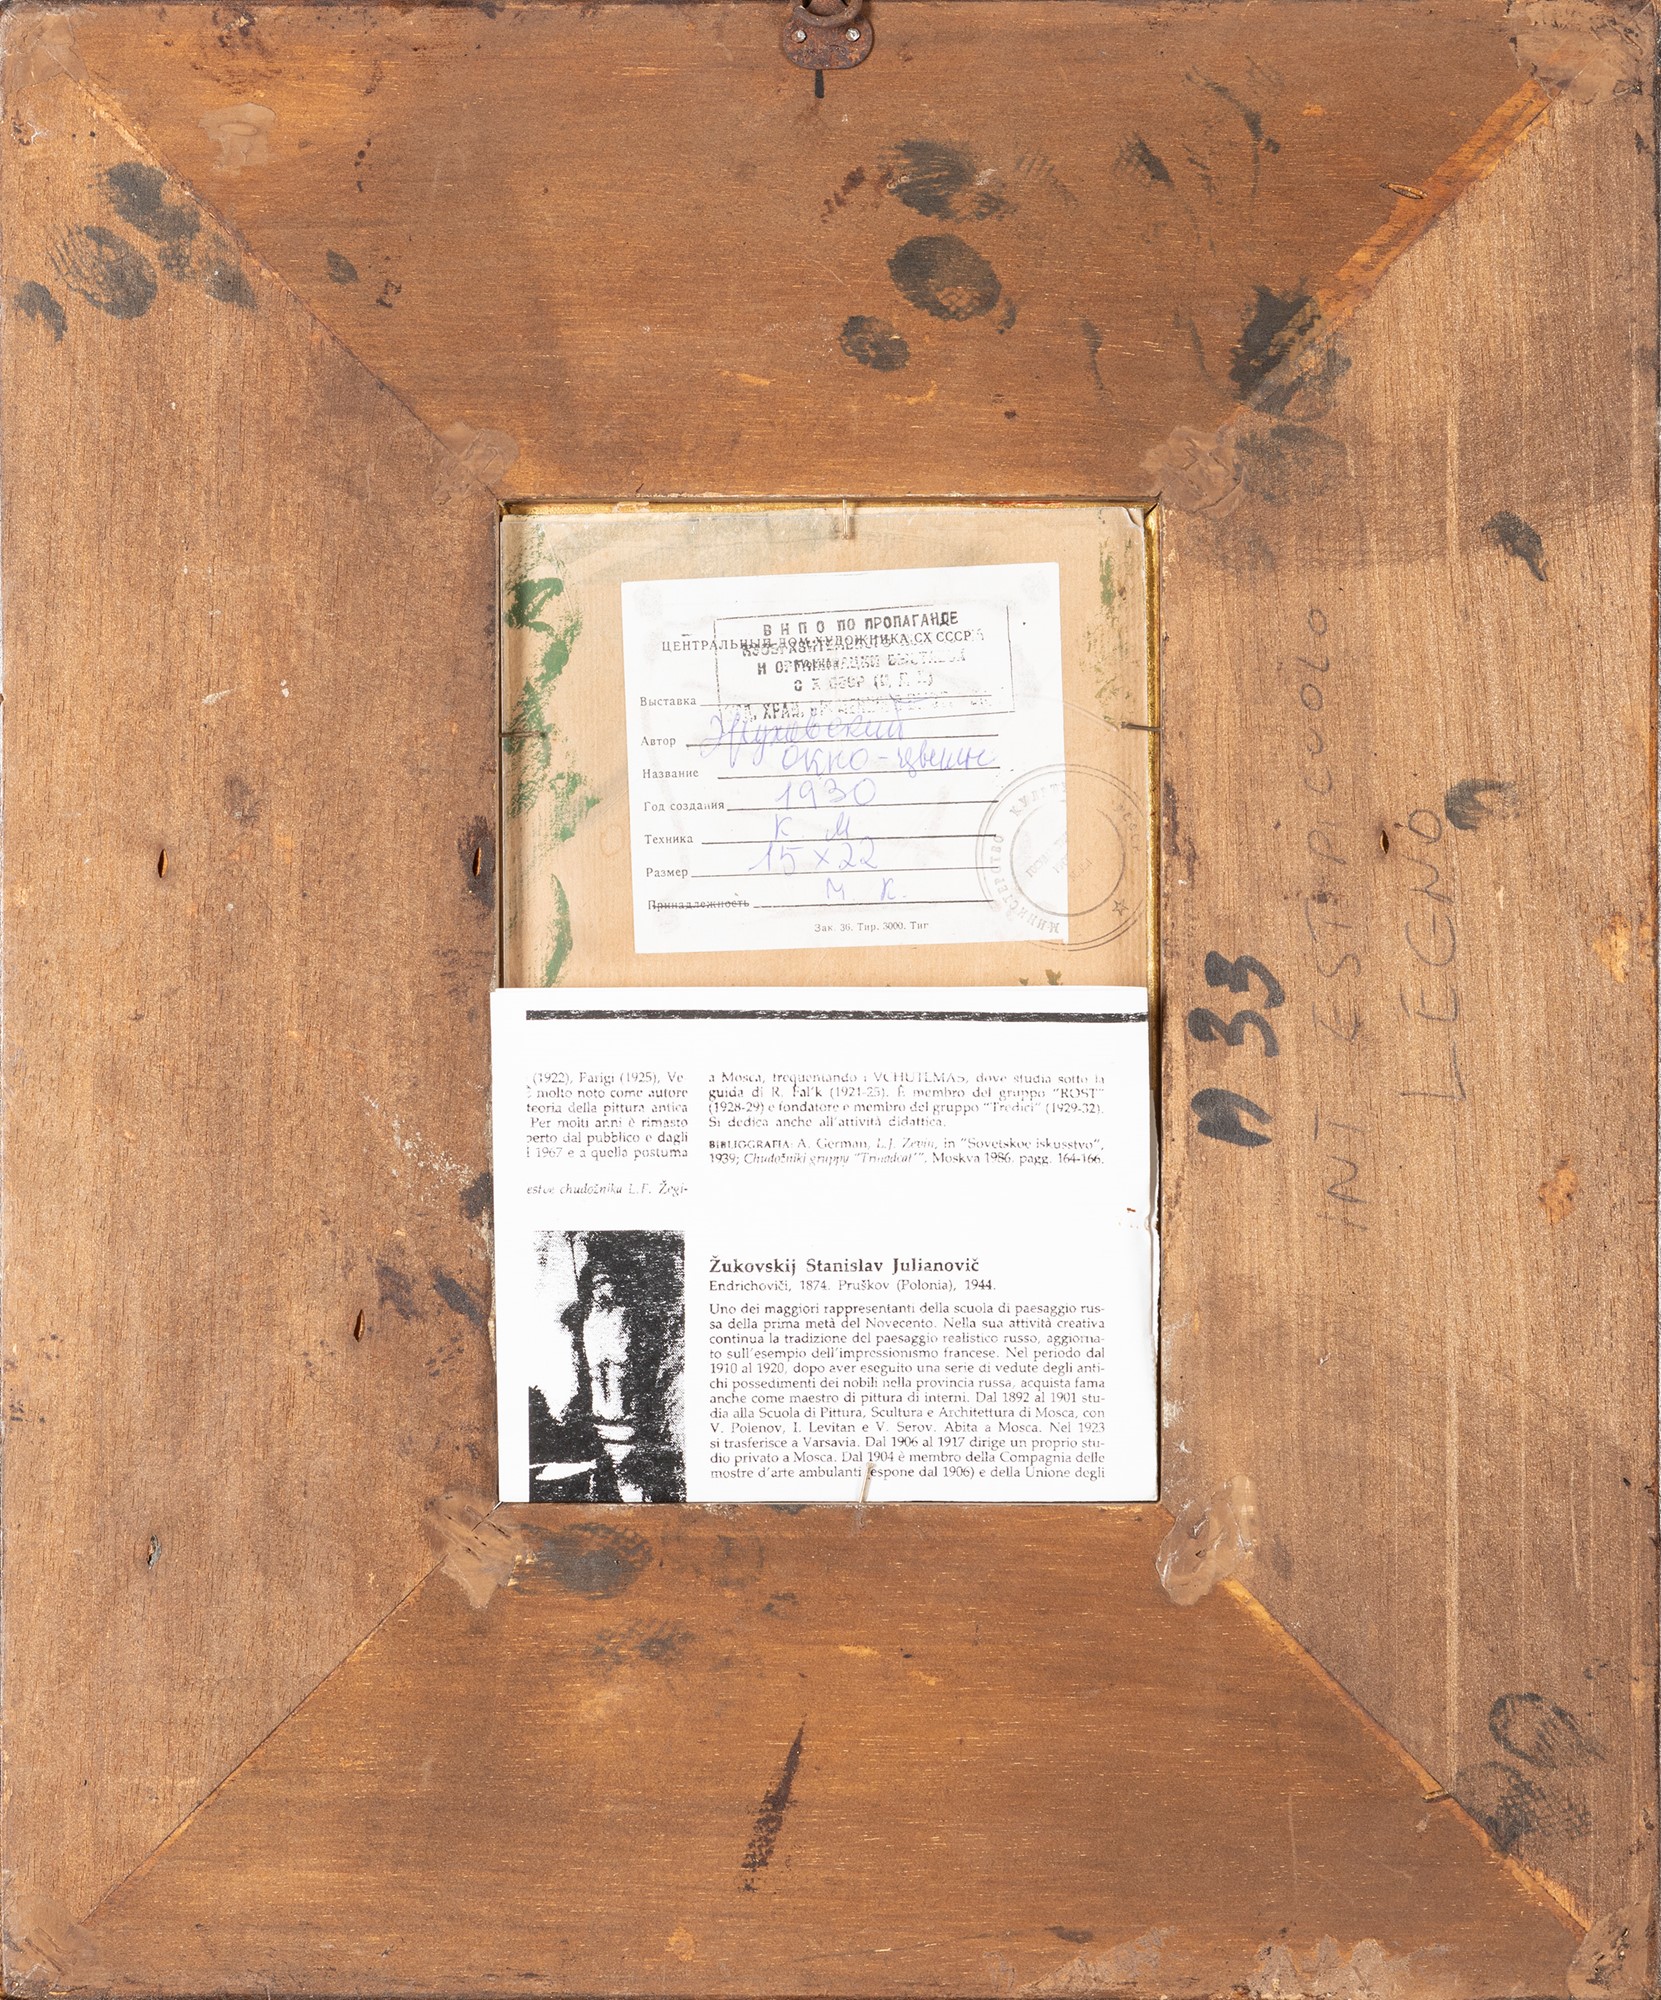 В Н П О ПО ПРОПАГАНДЕ
ЦЕНТРАЛЬНЫЙ ДОМ ХУДОЖНИКА СХ СССР
И ОРГАНИЗАЦИИ ВЫСТАВОК
Выставка
Автор Жуковский
Название окно-цветы
Год создания 1930
Техника К М
Размер 15 x 22
Принадлежность М. К.
Зак. 36. Тир. 3000. Тиг
МИНИСТЕРСТВО
(1922), Parigi (1925), Ve-
molto noto come autore
teoria della pittura antica
Per molti anni è rimasto
perto dal pubblico e dagli
1967 e a quella postuma
estve chudožnika L.F. Žegi-
a Mosca, frequentando i VCHUTEMAS, dove studia sotto la
guida di R. Fal'k (1921-25). È membro del gruppo "ROST"
(1928-29) e fondatore e membro del gruppo "Tredici" (1929-32).
Si dedica anche all'attività didattica.
BIBLIOGRAFIA: A. German, L.J. Zevin, in "Sovetskoe iskusstvo",
1939; Chudožniki gruppy "Trinadcat'", Moskva 1986, pagg. 164-166.
Žukovskij Stanislav Julianovič
Endrichoviči, 1874. Pruškov (Polonia), 1944.
Uno dei maggiori rappresentanti della scuola di paesaggio rus-
sa della prima metà del Novecento. Nella sua attività creativa
continua la tradizione del paesaggio realistico russo, aggiorna-
to sull'esempio dell'impressionismo francese. Nel periodo dal
1910 al 1920, dopo aver eseguito una serie di vedute degli anti-
chi possedimenti dei nobili nella provincia russa, acquista fama
anche come maestro di pittura di interni. Dal 1892 al 1901 stu-
dia alla Scuola di Pittura, Scultura e Architettura di Mosca, con
V. Polenov, I. Levitan e V. Serov. Abita a Mosca. Nel 1923
si trasferisce a Varsavia. Dal 1906 al 1917 dirige un proprio stu-
dio privato a Mosca. Dal 1904 è membro della Compagnia delle
mostre d'arte ambulanti (espone dal 1906) e della Unione degli
A 33
INT EST PICCOLO
LEGNO